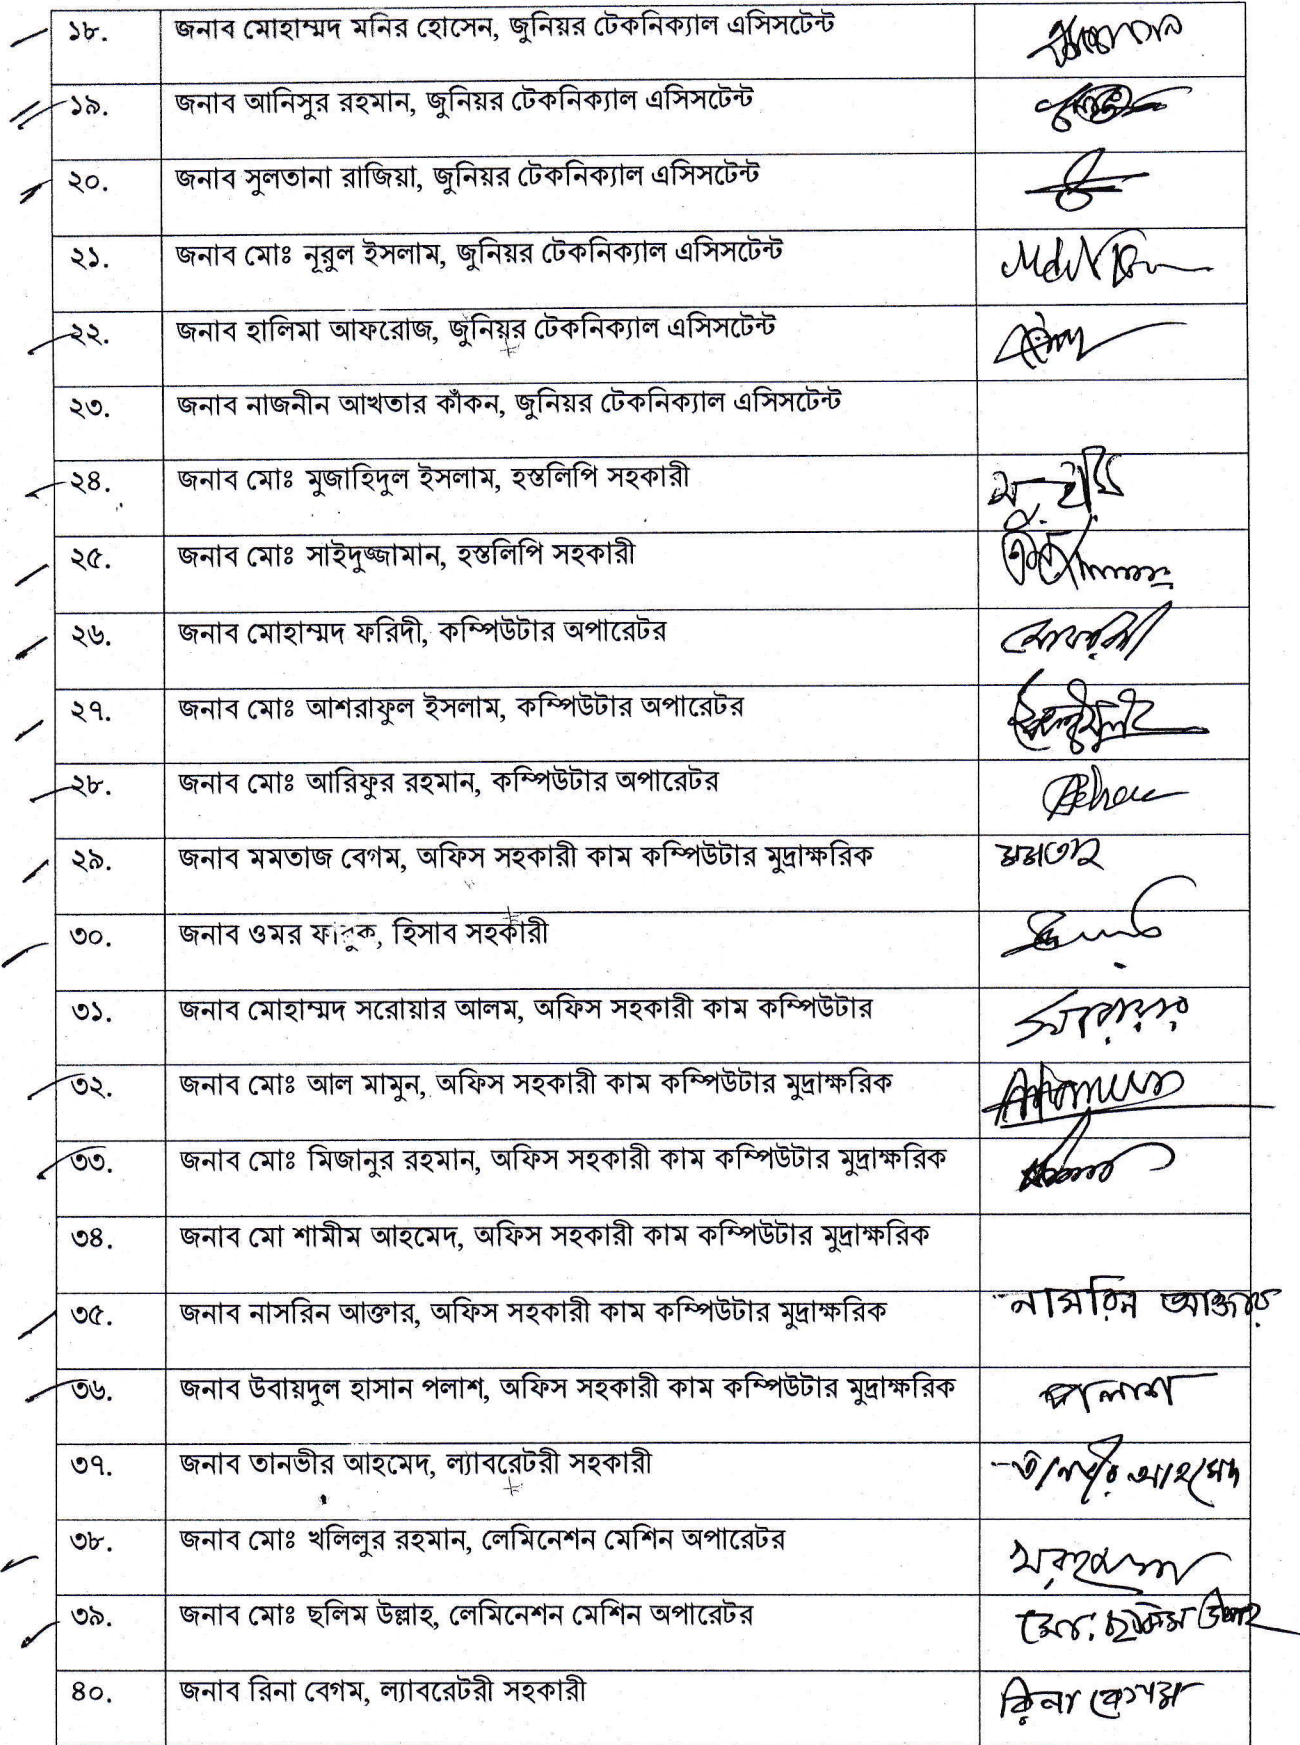 ১৮. জনাব মোহাম্মদ মনির হোসেন, জুনিয়র টেকনিক্যাল এসিসটেন্ট
১৯. জনাব আনিসুর রহমান, জুনিয়র টেকনিক্যাল এসিসটেন্ট
২০. জনাব সুলতানা রাজিয়া, জুনিয়র টেকনিক্যাল এসিসটেন্ট
২১. জনাব মোঃ নূরুল ইসলাম, জুনিয়র টেকনিক্যাল এসিসটেন্ট
২২. জনাব হালিমা আফরোজ, জুনিয়র টেকনিক্যাল এসিসটেন্ট
২৩. জনাব নাজনীন আখতার কাঁকন, জুনিয়র টেকনিক্যাল এসিসটেন্ট
২৪. জনাব মোঃ মুজাহিদুল ইসলাম, হস্তলিপি সহকারী
২৫. জনাব মোঃ সাইদুজ্জামান, হস্তলিপি সহকারী
২৬. জনাব মোহাম্মদ ফরিদী, কম্পিউটার অপারেটর
২৭. জনাব মোঃ আশরাফুল ইসলাম, কম্পিউটার অপারেটর
২৮. জনাব মোঃ আরিফুর রহমান, কম্পিউটার অপারেটর
২৯. জনাব মমতাজ বেগম, অফিস সহকারী কাম কম্পিউটার মুদ্রাক্ষরিক মমতাজ
৩০. জনাব ওমর ফারুক, হিসাব সহকারী
৩১. জনাব মোহাম্মদ সরোয়ার আলম, অফিস সহকারী কাম কম্পিউটার সরোয়ার
৩২. জনাব মোঃ আল মামুন, অফিস সহকারী কাম কম্পিউটার মুদ্রাক্ষরিক
৩৩. জনাব মোঃ মিজানুর রহমান, অফিস সহকারী কাম কম্পিউটার মুদ্রাক্ষরিক
৩৪. জনাব মো শামীম আহমেদ, অফিস সহকারী কাম কম্পিউটার মুদ্রাক্ষরিক
৩৫. জনাব নাসরিন আক্তার, অফিস সহকারী কাম কম্পিউটার মুদ্রাক্ষরিক নাসরিন আক্তার
৩৬. জনাব উবায়দুল হাসান পলাশ, অফিস সহকারী কাম কম্পিউটার মুদ্রাক্ষরিক পলাশ
৩৭. জনাব তানভীর আহমেদ, ল্যাবরেটরী সহকারী তানভীর আহমেদ
৩৮. জনাব মোঃ খলিলুর রহমান, লেমিনেশন মেশিন অপারেটর
৩৯. জনাব মোঃ ছলিম উল্লাহ, লেমিনেশন মেশিন অপারেটর মোঃ ছলিম উল্লাহ
৪০. জনাব রিনা বেগম, ল্যাবরেটরী সহকারী রিনা বেগম